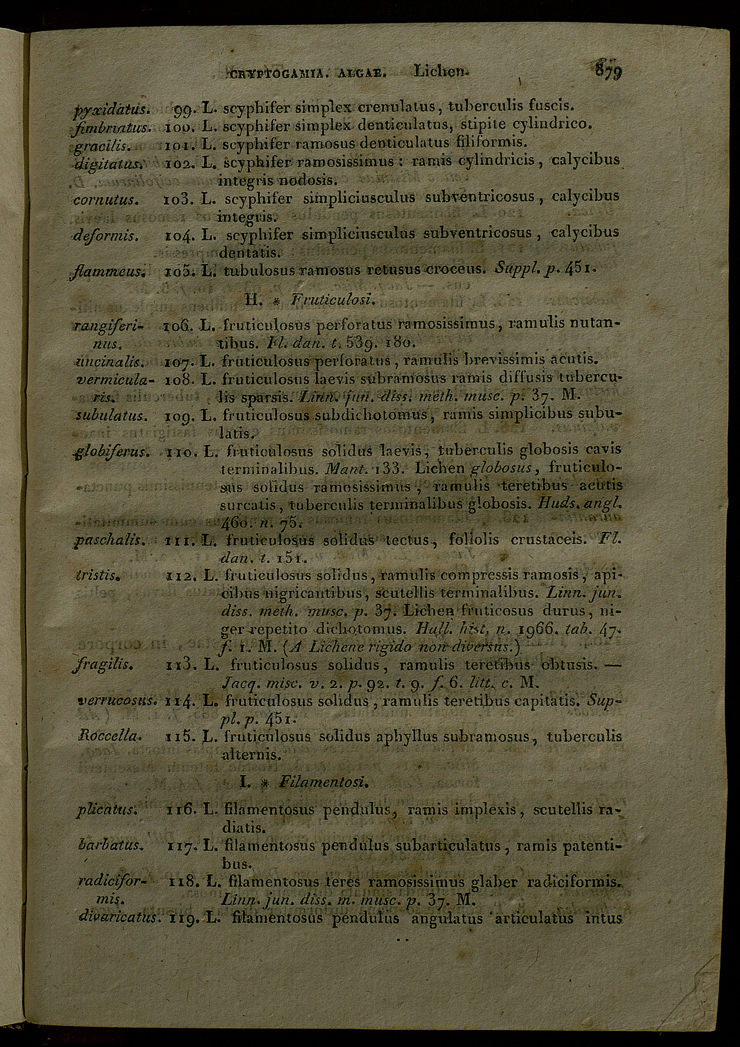 CRYPTOGAMIA. ALGAE. Lichen. 879
pyxidatus. 99. L. scyphifer simplex crenulatus, tuberculis fuscis.
fimbriatus. 100. L. scyphifer simplex denticulatus, stipite cylindrico.
gracilis. 101. L. scyphifer ramosus denticulatus filiformis.
digitatus. 102. L. scyphifer ramosissimus: ramis cylindricis, calycibus
integris nodosis.
cornutus. 103. L. scyphifer simpliciusculus subventricosus, calycibus
integris.
deformis. 104. L. scyphifer simpliciusculus subventricosus, calycibus
dentatis.
flammeus. 105. L. tubulosus ramosus retusus croceus. Suppl. p. 451.
H. * Fruticulosi.
rangiferi- 106. L. fruticulosus perforatus ramosissimus, ramulis nutan-
nus. tibus. Fl. dan. t. 539. 180.
uncinalis. 107. L. fruticulosus perforatus, ramulis brevissimis acutis.
vermicula- 108. L. fruticulosus laevis subramosus ramis diffusis tubercu-
ris. lis sparsis. Linn. jun. diss. meth. musc. p. 37. M.
subulatus. 109. L. fruticulosus subdichotomus, ramis simplicibus subu-
latis.
globiferus. 110. L. fruticulosus solidus laevis, tuberculis globosis cavis
terminalibus. Mant. 133. Lichen globosus, fruticulo-
sus solidus ramosissimus, ramulis teretibus acutis
surcatis, tuberculis terminalibus globosis. Huds. angl.
460. n. 75.
paschalis. 111. L. fruticulosus solidus tectus, foliolis crustaceis. Fl.
dan. t. 151.
tristis. 112. L. fruticulosus solidus, ramulis compressis ramosis, api-
cibus nigricantibus, scutellis terminalibus. Linn. jun.
diss. meth. musc. p. 37. Lichen fruticosus durus, ni-
ger repetito dichotomus. Hall. hist. n. 1966. tab. 47.
f. 1. M. (A Lichene rigido non diversus.)
fragilis. 113. L. fruticulosus solidus, ramulis teretibus obtusis. —
Jacq. misc. v. 2. p. 92. t. 9. f. 6. litt. c. M.
verrucosus. 114. L. fruticulosus solidus, ramulis teretibus capitatis. Sup-
pl. p. 451.
Roccella. 115. L. fruticulosus solidus aphyllus subramosus, tuberculis
alternis.
I. * Filamentosi.
plicatus. 116. L. filamentosus pendulus, ramis implexis, scutellis ra-
diatis.
barbatus. 117. L. filamentosus pendulus subarticulatus, ramis patenti-
bus.
radicifor- 118. L. filamentosus teres ramosissimus glaber radiciformis.
mis. Linn. jun. diss. m. musc. p. 37. M.
divaricatus. 119. L. filamentosus pendulus angulatus articulatus intus